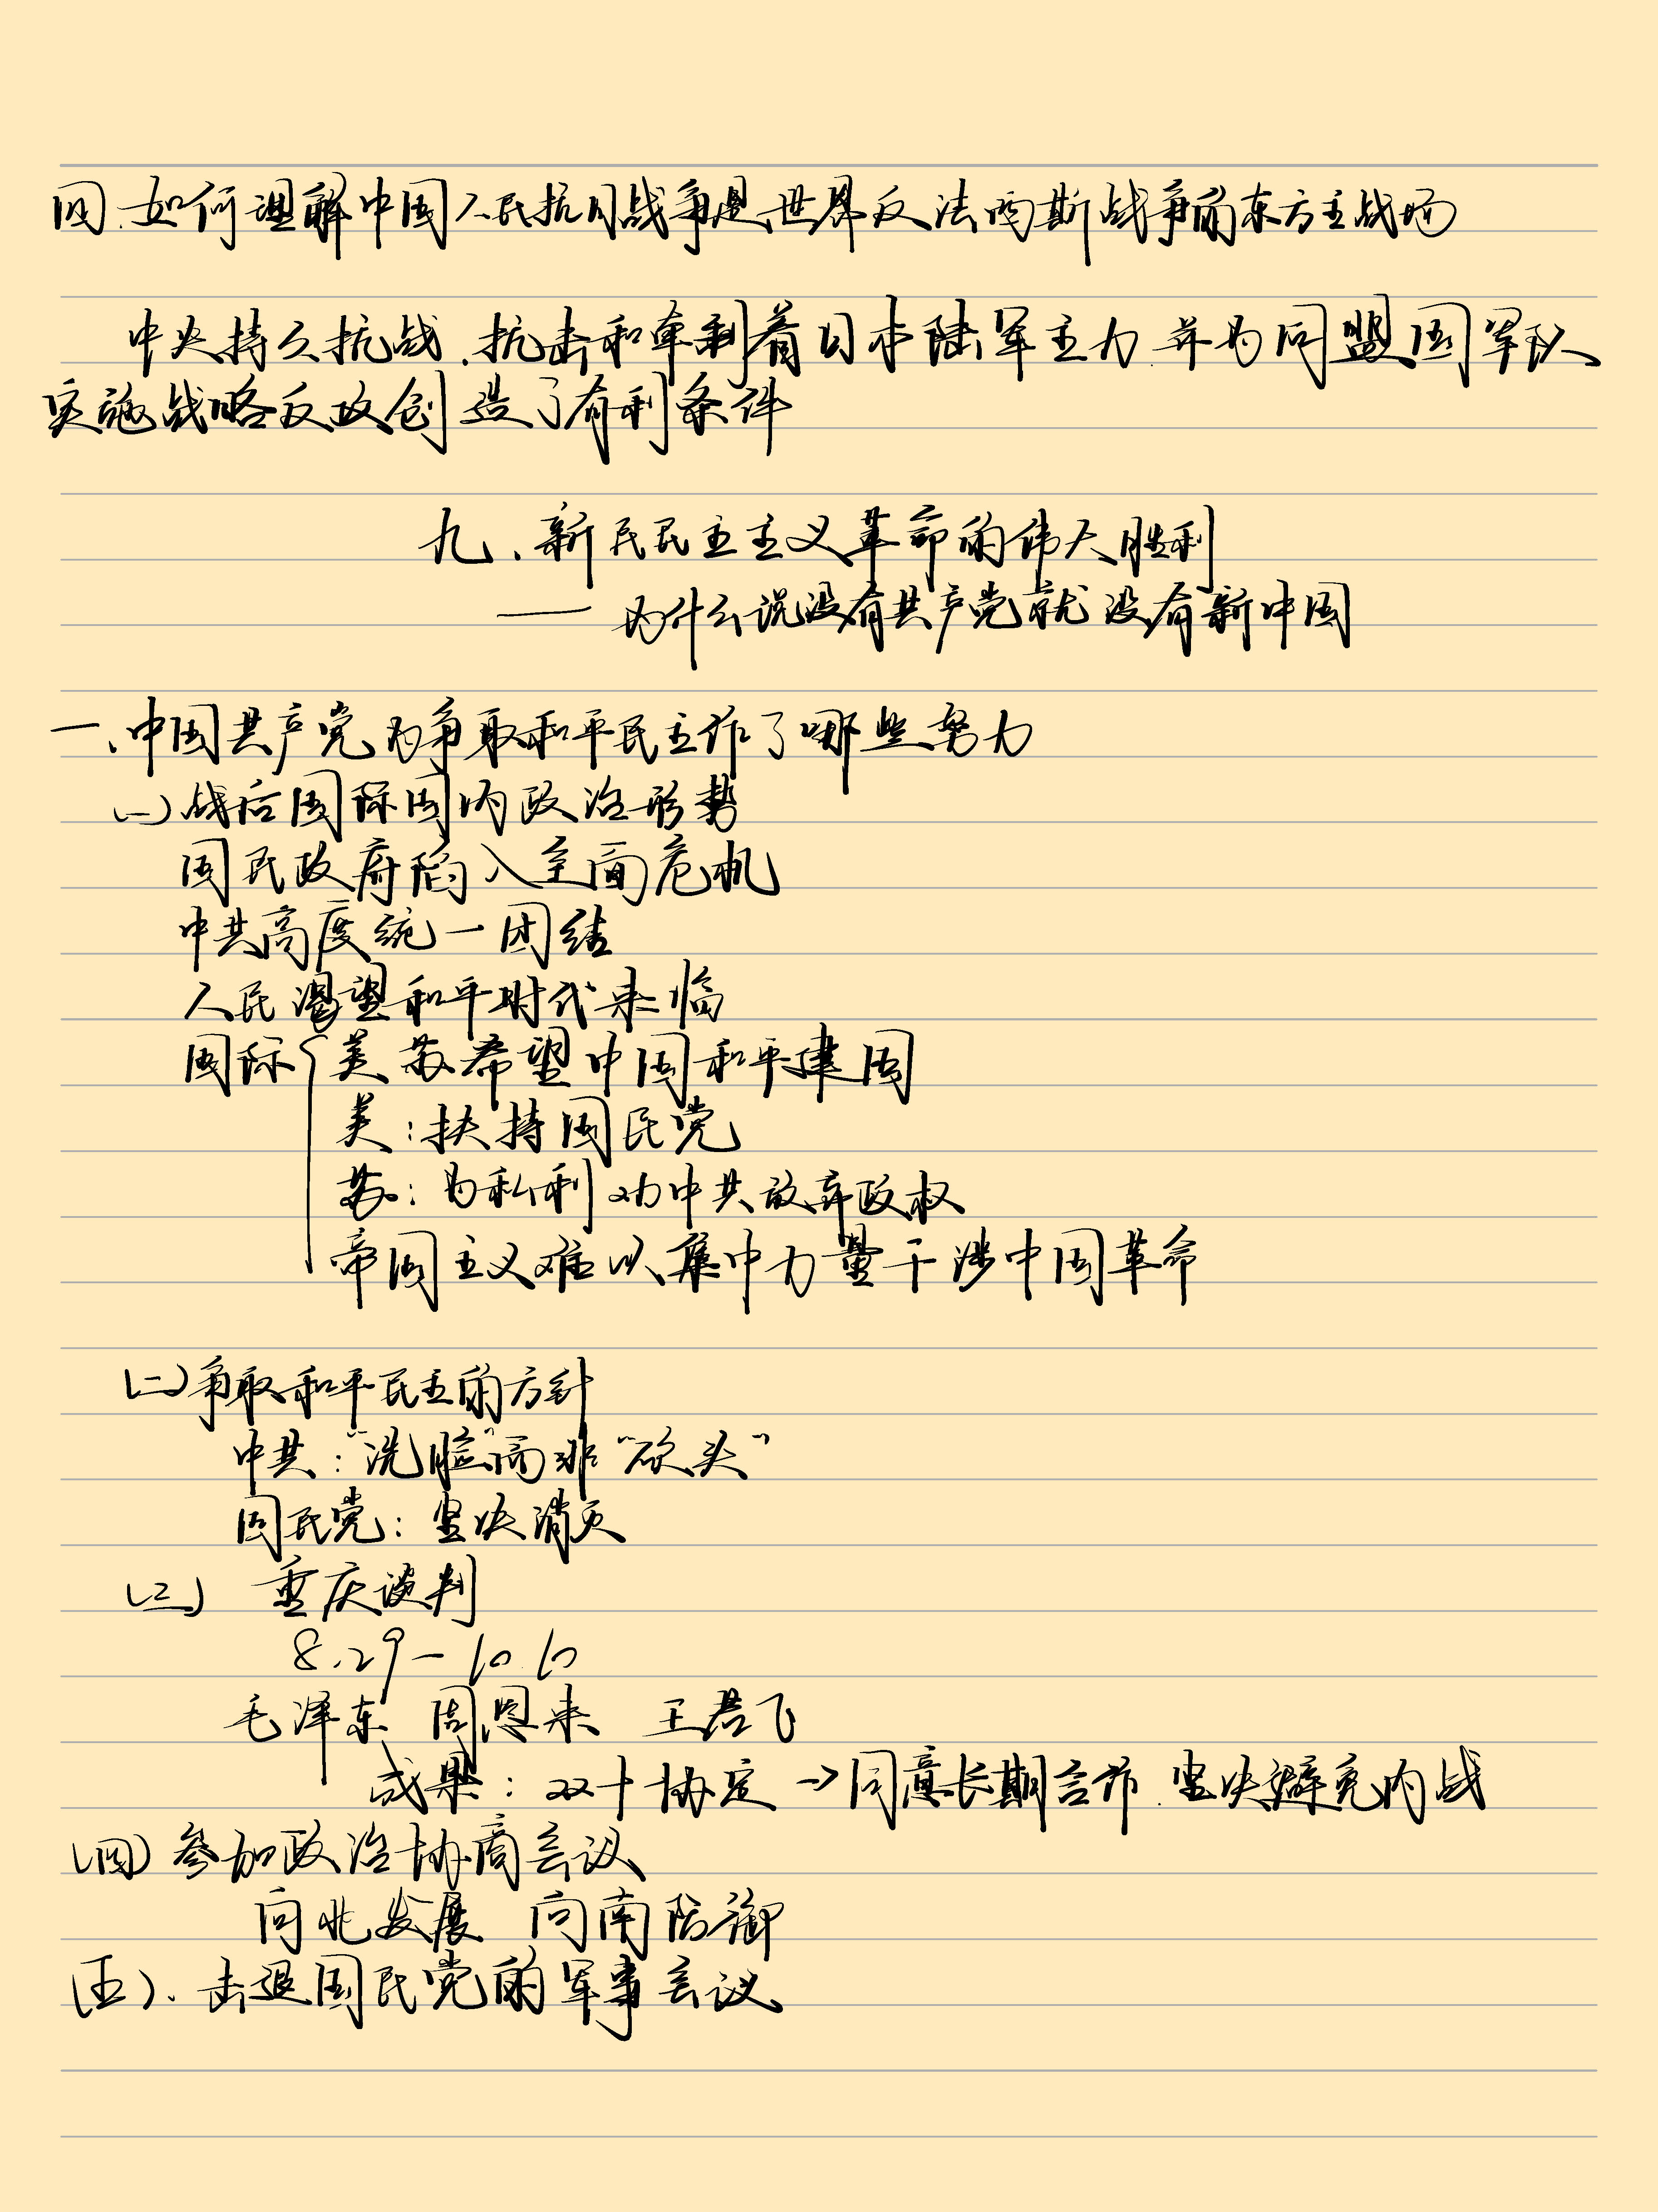 四、如何理解中国人民抗日战争是世界反法西斯战争的东方主战场
中央持久抗战.抗击和牵制着日本陆军主力.并为同盟国军队
实施战略反攻创造了有利条件
九、新民民主主义革命的伟大胜利
——为什么说没有共产党就没有新中国
一、中国共产党为争取和平民主作了哪些努力
(一)战后国际国内政治形势
国民政府陷入全面危机
中共高度统一团结
人民渴望和平时代来临
国际{美苏希望中国和平建国
美:扶持国民党
苏:为私利劝中共放弃政权
帝国主义难以集中力量干涉中国革命
(二)争取和平民主的方针
中共:"洗脸"而非"砍头"
国民党:坚决消灭
(三) 重庆谈判
8.29-10.10
毛泽东 周恩来 王若飞
成果:双十协定→同意长期合作.坚决避免内战
(四)参加政治协商会议
向北发展 向南防御
(五).击退国民党的军事会议